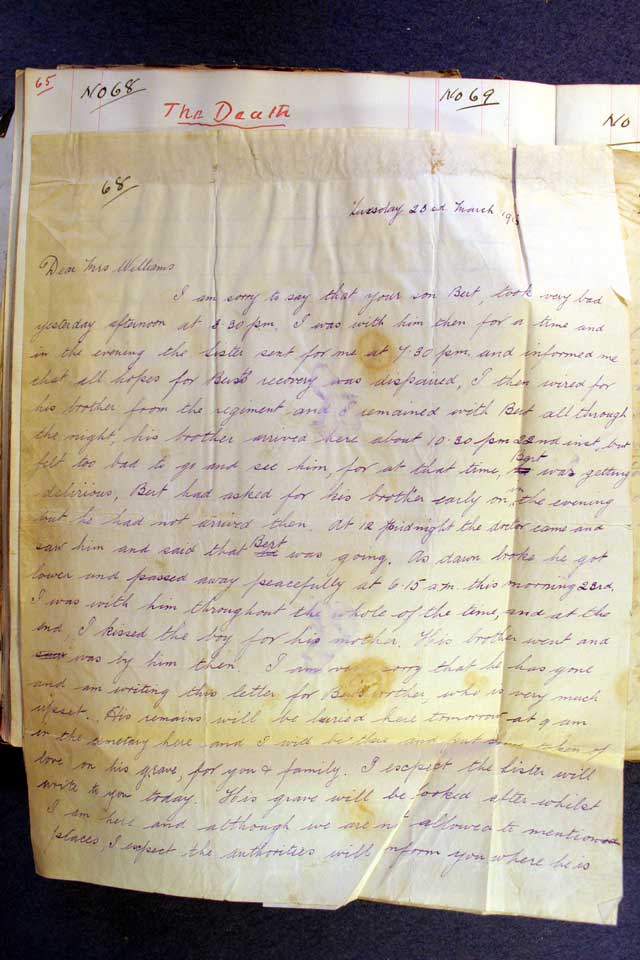 65
No 68
No 69
No
The Death
68
Tuesday 23rd March 191
Dear Mrs Williams
I am sorry to say that your son Bert, took very bad
yesterday afternoon at 3.30 pm, I was with him then for a time and
in the evening the Sister sent for me at 7.30 pm. and informed me
that all hopes for Bert's recovery was dispaired, I then wired for
his brother from the regiment and I remained with Bert all through
the night, his brother arrived here about 10.30 pm 22nd inst, but
felt too bad to go and see him, for at that time, Bert was getting
delirious, Bert had asked for his brother early on in the evening
but he had not arrived then. At 12 Midnight the doctor came and
saw him and said that Bert was going. As dawn broke he got
lower and passed away peacefully at 6.15 a.m. this morning 23rd.
I was with him throughout the whole of the time, and at the
end, I kissed the boy for his mother. His brother went and
was by him then. I am very sorry that he has gone
and am writing this letter for Bert's brother, who is very much
upset. His remains will be buried here tomorrow at 9 am
in the cemetary here and I will be there and put some token of
love on his grave, for you & family. I escpect the Sister will
write to you today. His grave will be looked after whilst
I am here and although we are n't allowed to mention
places, I expect the authorities will inform you where he is